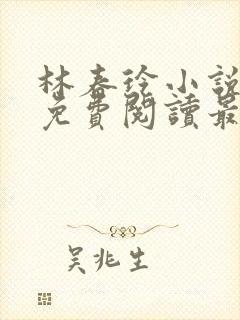 林春徐小說
免費閱讀最
吳兆生